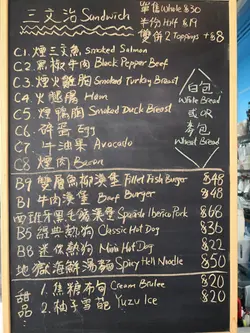 三文治 Sandwich
單隻 Whole $30
半份 Half $19
雙併 2 Toppings +$8
C1. 煙三文魚 Smoked Salmon
C2. 黑椒牛肉 Black Pepper Beef
C3. 煙火雞胸 Smoked Turkey Breast
C4. 火腿 Ham
C5. 煙鴨胸 Smoked Duck Breast
C6. 碎蛋 Egg
C7. 牛油果 Avocado
C8 煙肉 Bacon
白包
White Bread
或 OR
麥包
Wheat Bread
B9 雙層魚柳漢堡 Fillet Fish Burger $48
B1 牛肉漢堡 Beef Burger $48
西班牙黑毛豬漢堡 Spanish Iberico Pork $68
B5 經典熱狗 Classic Hot Dog $36
B6 迷你熱狗 Mini Hot Dog $22
地獄海鮮湯麵 Spicy Hell Noodle $50
甜品
1. 焦糖布甸 Cream Brulee $20
2. 柚子雪葩 Yuzu Ice $20